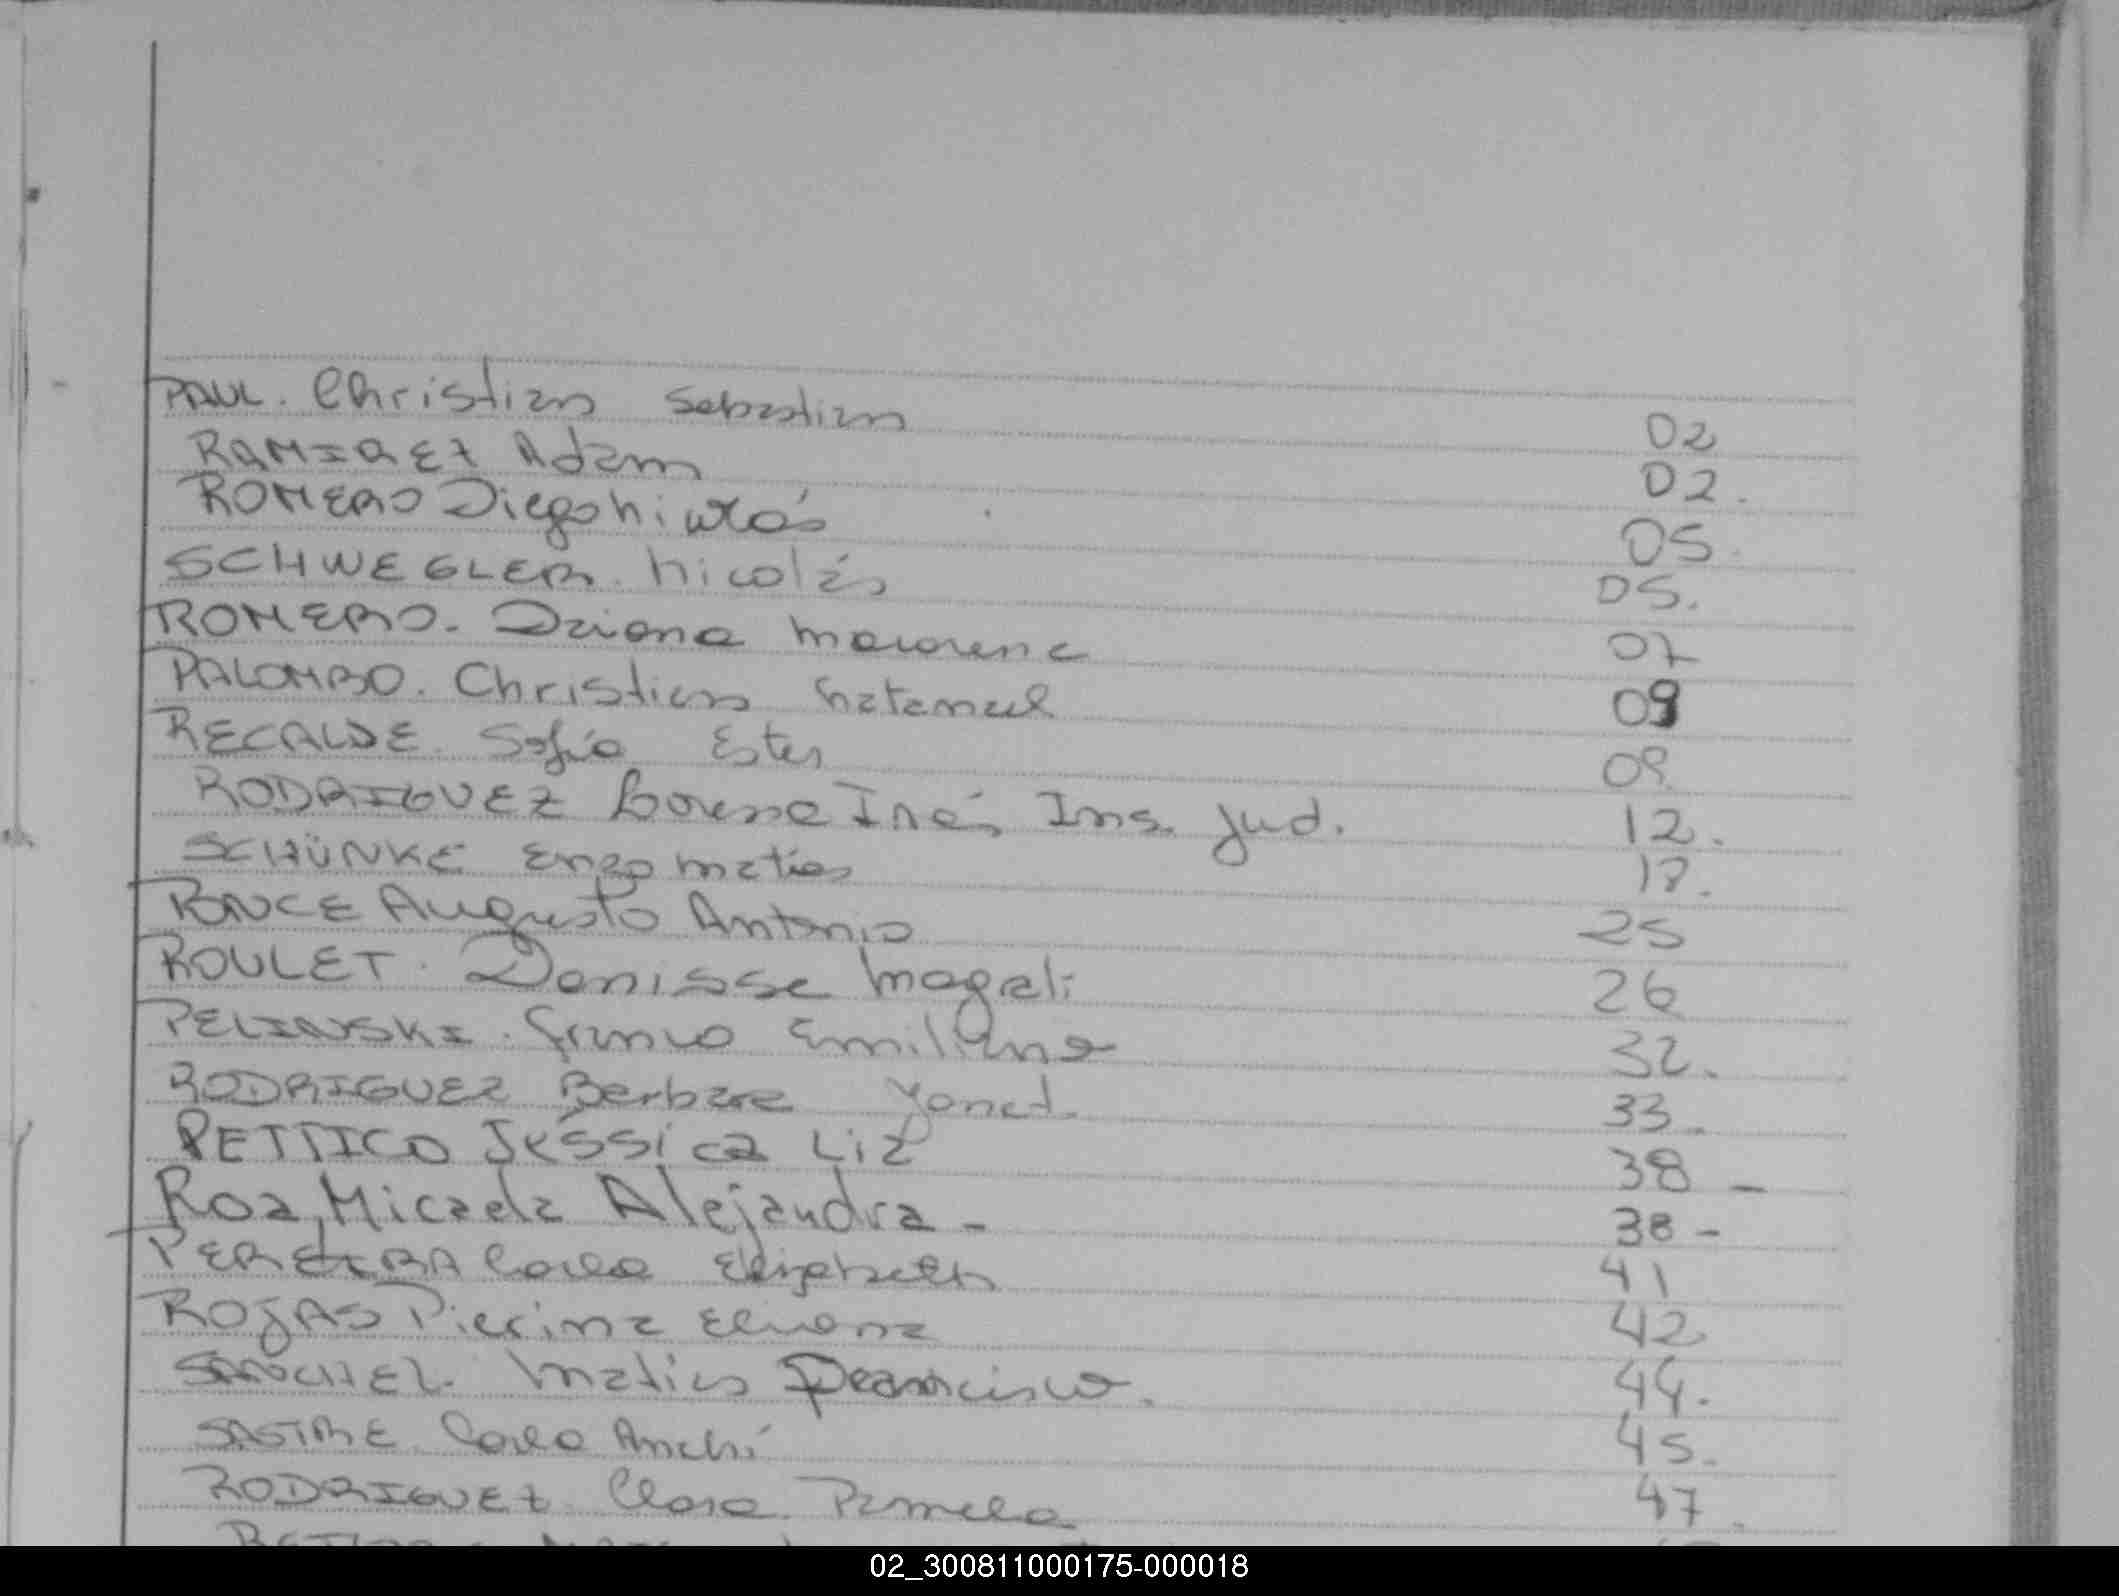 PAUL. Christian Sebastian 02
RAMIREZ Adam 02.
ROMERO Diego Nicolás 05.
SCHWEGLER. Nicolás 05.
ROMERO. Daiana Macarena 07
PALOMBO. Christian Natanael 09
RECALDE. Sofía Ester 09
RODRIGUEZ Lorena Inés Ins. Jud. 12.
SCHÜNKE Enzo Matías 18.
PONCE Augusto Antonio 25
ROULET. Denisse Magali 26
PELINSKI. Franco Emiliano 32.
RODRIGUEZ Barbara Yanet. 33.
PETTICO Jéssica Liz 38 -
Roa, Micaela Alejandra - 38 -
PEREIRA Carla Elizabeth 41
ROJAS Pierina Eliana 42
SANCHEZ. Matías Francisco. 44.
SASTRE Carla Anahí 45.
RODRIGUEZ. Clara Pamela 47.
02_300811000175-000018